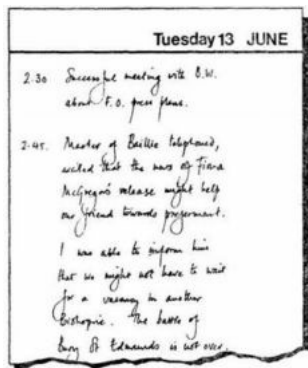 Tuesday 13 JUNE
2.30 Successful meeting with B.W.
about F.O. press plans.
2.45. Master of Baillie telephoned,
excited that the news of Fiona
McGregor's release might help
our friend towards preferment.
I was able to inform him
that we might not have to wait
for a vacancy in another
Bishopric. The battle of
Bury St Edmunds is not over.